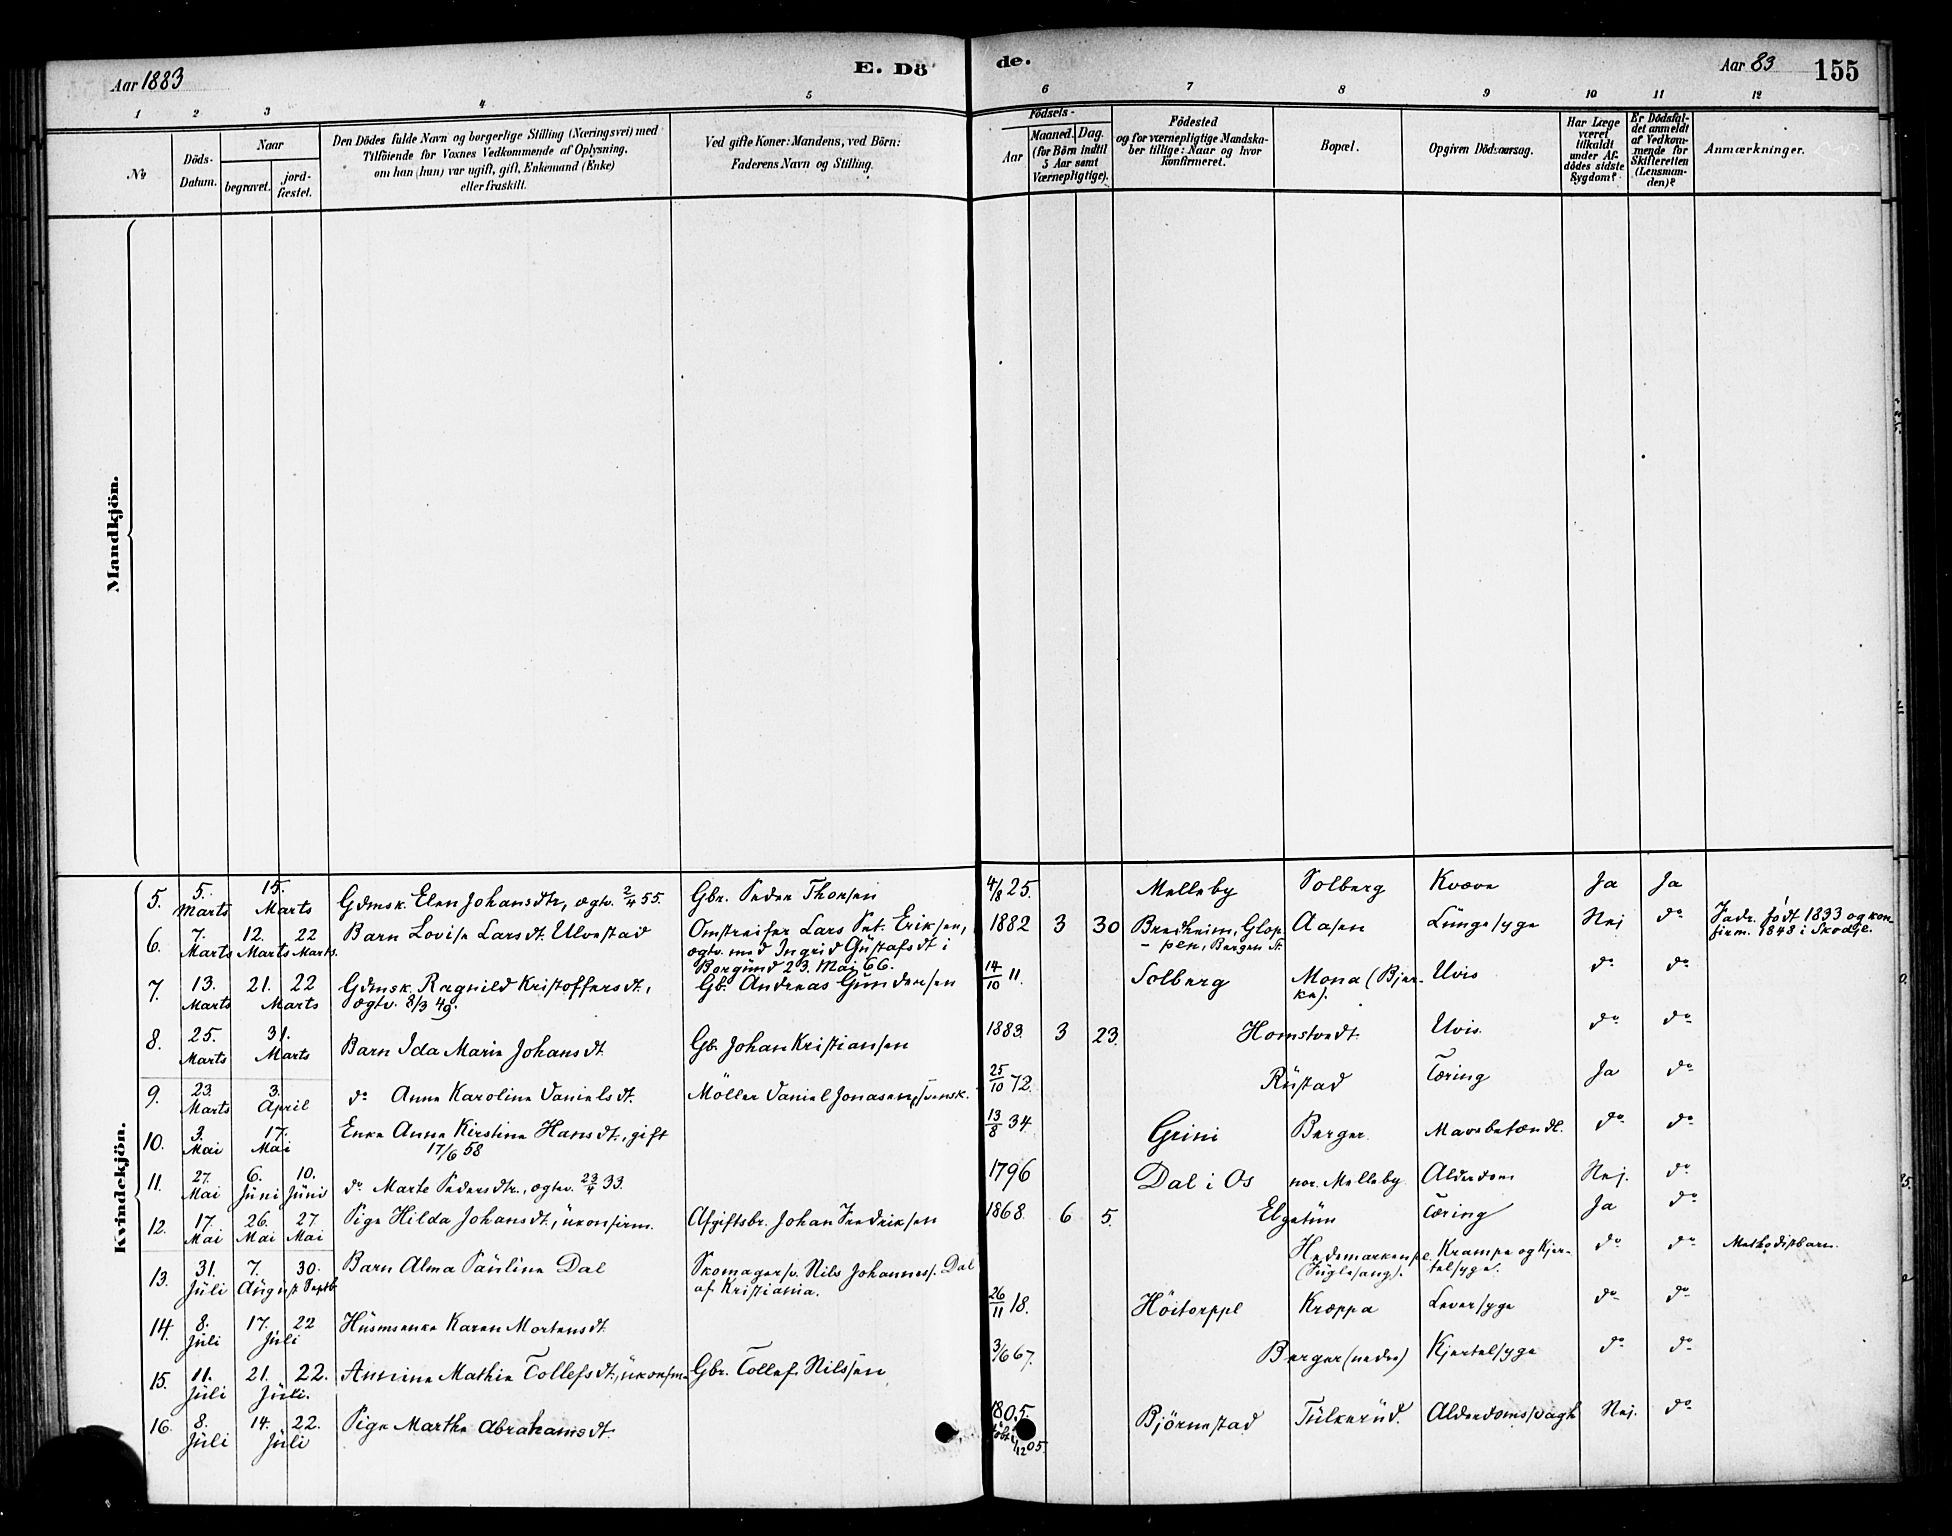 Aar 1883
E. Dö
de.
Aar 83
155
1 2 3 4 5 6 7 8 9 10 11 12
No
Döds-Datum.
Naar
begravet.
jord-fæstet.
Den Dödes fulde Navn og borgerlige Stilling (Næringsvei) med
Tilföiende for Voxnes Vedkommende af Oplysning,
om han (hun) var ugift, gift, Enkemand (Enke)
eller fraskilt.
Ved gifte Koner: Mandens, ved Börn:
Faderens Navn og Stilling.
Födsels-
Aar
Maaned. Dag.
(for Börn indtil
5 Aar samt
Værnepligtige).
Födested
og for værnepligtige Mandska-
ber tillige: Naar og hvor
konfirmeret.
Bopæl.
Opgiven Dödsaarsag.
Har Læge
været
tilkaldt
under Af-
dödes sidste
Sygdom?
Er Dödsfal-
det anmeldt
af Vedkom-
mende for
Skifteretten
(Lensman-
den)?
Anmærkninger.
Mandkjön.
Kvindekjön.
5. 5. Marts 15. Marts Gdmsk. Elen Johansdtr, ægtv. 2/4 55. Gbr. Peder Thorsen 4/8 25. Melleby Solberg Kræve Ja Ja
6. 7. Marts 12. Marts 22 Marts. Barn Lovise Larsdt. Ulvestad Omstreifer Lars Pet. Eriksen,
ægtv. med Ingrid Gustafsdt i
Borgund 23. Mai 66. 1882 3 30 Bredheim, Glop-
pen, Bergen St. Aasen Lungesyge Nej do Fadr. født 1833 og kon
firm. 1848 i Skodje.
7. 13. Marts 21. 22 Marts Gdmsk. Ragnild Kristoffersdt,
ægtv. 8/3 49. Gb. Andreas Gundersen 14/10 11. Solberg Mona (Bjer-
ke). Uvis do do
8. 25. Marts 31. Marts Barn Ida Marie Johansdt Gb. Johan Kristiansen 1883 3 23. Homstvedt Uvis. do do
9. 23. Marts 3. April do Anne Karoline Danielsdt. Möller Daniel Jonasen, svensk. 25/10 72. Rustad Tæring Ja do
10. 3. Mai 17. Mai Enke Anne Kirstine Hansdt, gift
17/6 58 13/8 34. Grini Berger. Mavebetændl. do do
11. 27. Mai 6. Juni 10. Juni do Marte Pedersdtr., ægtv. 23/4 33. 1796 Dal i Os nor. Melleby Alderdom Nej. do
12. 17. Mai 26. Mai 27 Mai Pige Hilda Johansdt, ukonfirm. Afgiftsbr. Johan Fredriksen 1868. 6 5. Elgetun Tæring Ja do
13. 31. Juli 7. August 30. Septb Barn Alma Pauline Dal Skomagersv. Nils Johanness. Dal
af Kristiania. Hedemarkenspl.
(Fuglesang). Krampe og Kjer-
telsyge. do do Methodistbarn.
14. 8. Juli 17. 22 Juli Husmsenke Karen Mortensdt. 26/11 18. Höitorppl Kræppa Leversyge do do
15. 11. Juli 21. 22. Juli. Annine Mathie Tollefsdt, ukonfirm Gbr. Tollef Nilssen 3/6 67. Berger (nedre) Kjertelsyge do do
16. 8. Juli 14. 22. Juli Pige Marthe Abrahamsdt. 1805. Björnestad Tulkerud. Alderdomssvagh Nej. do